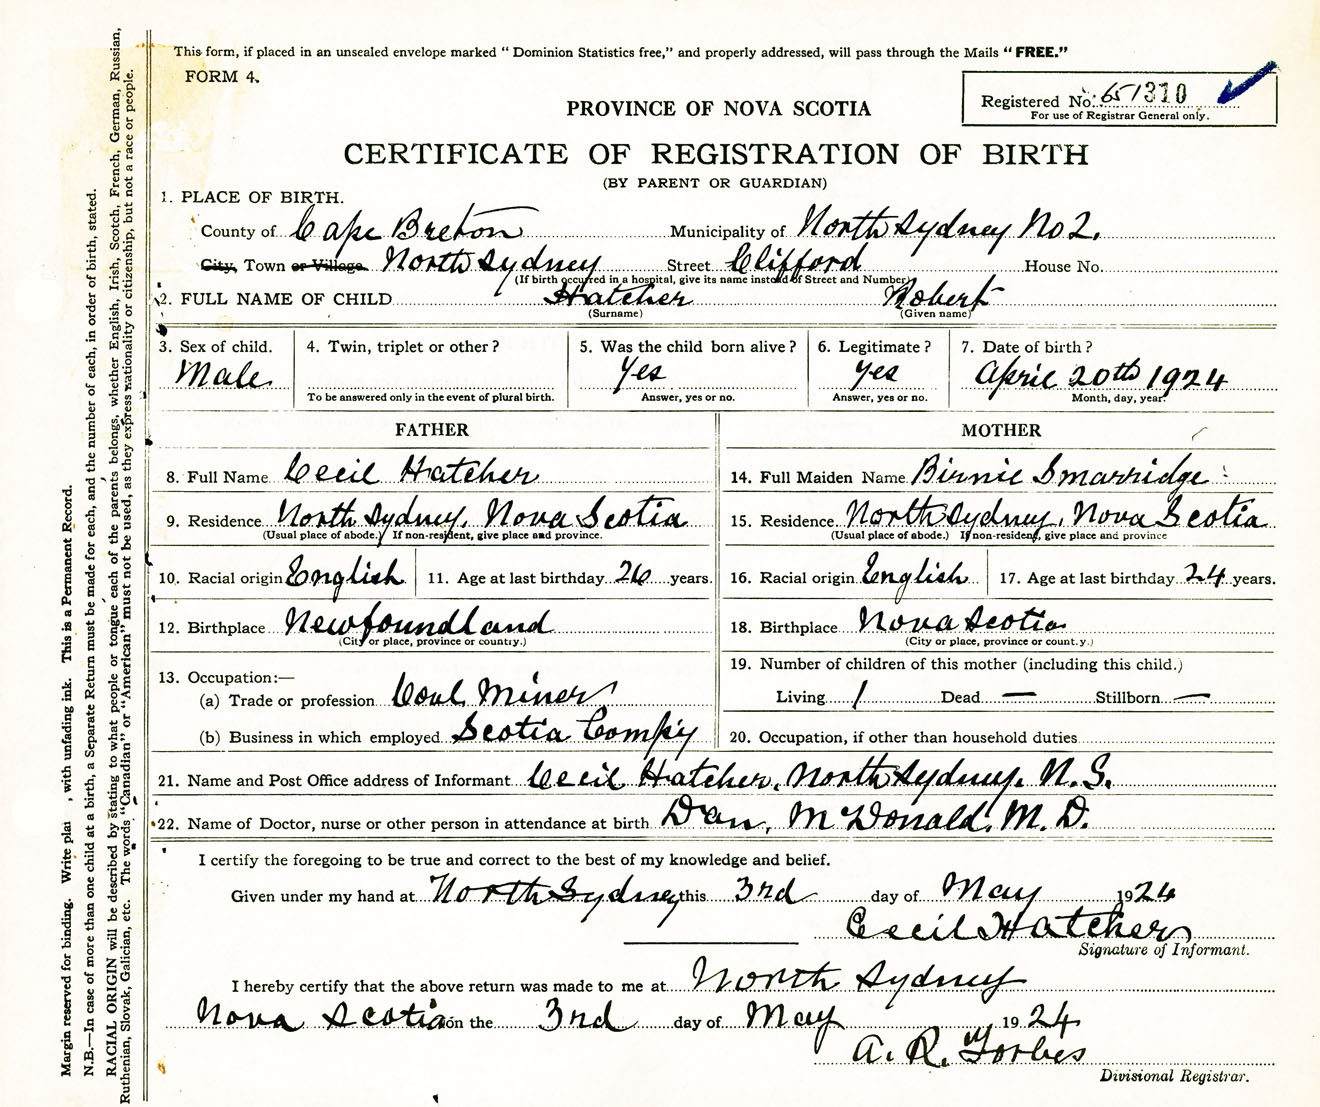 This form, if placed in an unsealed envelope marked "Dominion Statistics free," and properly addressed, will pass through the Mails "FREE."
FORM 4.
Registered No. 651310
For use of Registrar General only.
PROVINCE OF NOVA SCOTIA
CERTIFICATE OF REGISTRATION OF BIRTH
(BY PARENT OR GUARDIAN)
1. PLACE OF BIRTH.
County of Cape Breton Municipality of North Sydney No 2.
City, Town or Village North Sydney Street Clifford House No.
(If birth occurred in a hospital, give its name instead of Street and Number)
2. FULL NAME OF CHILD Hatcher Robert
(Surname) (Given name)
3. Sex of child. 4. Twin, triplet or other? 5. Was the child born alive? 6. Legitimate? 7. Date of birth?
Male Yes Yes April 20th 1924
To be answered only in the event of plural birth. Answer, yes or no. Answer, yes or no. Month, day, year.
FATHER MOTHER
8. Full Name Cecil Hatcher 14. Full Maiden Name Birnie Smarridge
9. Residence North Sydney, Nova Scotia 15. Residence North Sydney, Nova Scotia
(Usual place of abode.) If non-resident, give place and province. (Usual place of abode.) If non-resident, give place and province
10. Racial origin English 11. Age at last birthday 26 years. 16. Racial origin English 17. Age at last birthday 24 years.
12. Birthplace Newfoundland 18. Birthplace Nova Scotia
(City or place, province or country.) (City or place, province or country.)
13. Occupation:— 19. Number of children of this mother (including this child.)
(a) Trade or profession Coal Miner Living 1 Dead — Stillborn —
(b) Business in which employed Scotia Comp'y 20. Occupation, if other than household duties
21. Name and Post Office address of Informant Cecil Hatcher, North Sydney, N.S.
22. Name of Doctor, nurse or other person in attendance at birth Dan, McDonald. M.D.
I certify the foregoing to be true and correct to the best of my knowledge and belief.
Given under my hand at North Sydney this 3rd day of May 1924
Cecil Hatcher
Signature of Informant.
I hereby certify that the above return was made to me at North Sydney
Nova Scotia on the 3rd day of May 1924
A. R. Forbes
Divisional Registrar.
Margin reserved for binding. Write plai , with unfading ink. This is a Permanent Record.
N.B.—In case of more than one child at a birth, a Separate Return must be made for each, and the number of each, in order of birth, stated.
RACIAL ORIGIN will be described by stating to what people or tongue each of the parents belongs, whether English, Irish, Scotch, French, German, Russian,
Ruthenian, Slovak, Galician, etc. The words "Canadian" or "American" must not be used, as they express nationality or citizenship, but not a race or people.